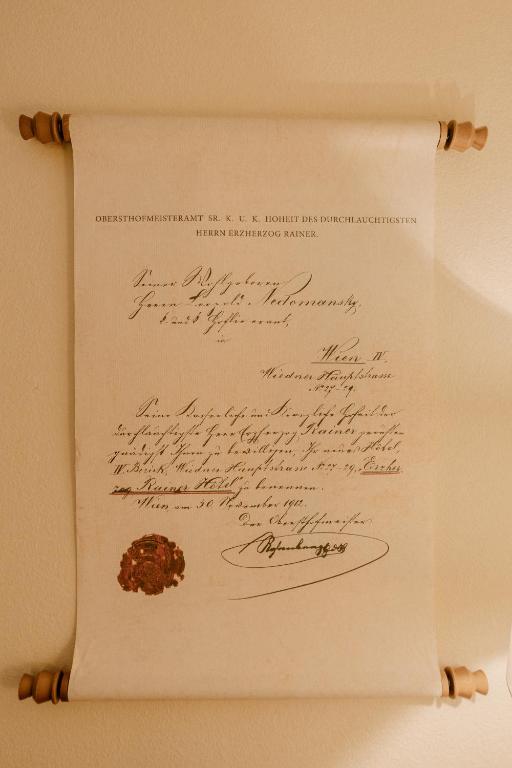 OBERSTHOFMEISTERAMT SR. K. U. K. HOHEIT DES DURCHLAUCHTIGSTEN
HERRN ERZHERZOG RAINER.
Seiner Wohlgeboren
Herrn Leopold Nedomansky,
k. und k. Hoflieferant,
in
Wien IV.
Wiedner Hauptstrasse
No 27-29.
Seine Kaiserliche und Königliche Hoheit der
durchlauchtigste Herr Erzherzog Rainer geruhten
gnädigst Ihnen zu bewilligen, Ihr neues Hôtel,
IV. Bezirk, Wiedner Hauptstrasse No 27-29, „Erzher-
zog Rainer Hôtel" zu benennen.
Wien am 30 November 1912.
Der Obersthofmeister